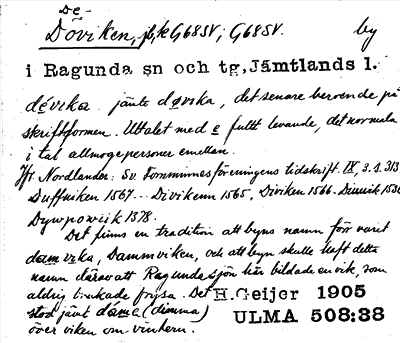 De-
Döviken, G68SV; G68SV. by
i Ragunda sn och tg, Jämtlands l.
dévika jämte døvika, det senare beroende på
skriftformen. Uttalet med e fullt levande, det normala
i tal allmogepersoner emellan.
Jfr Nordlander: Sv. Fornminnesföreningens tidskrift. IX, 3. s. 313
Duffuiken 1567... Divikenn 1565, Diviken 1566. 
Dywpowiik 1378.
Det finns en tradition att byns namn förr varit
damvika, Dammviken, och att byn skulle haft detta
namn därav att Ragundasjön här bildade en vik, som
aldrig brukade frysa. Det H. Geijer 1905
stod jämt (dimma) ULMA 508:38
över viken om vintern.